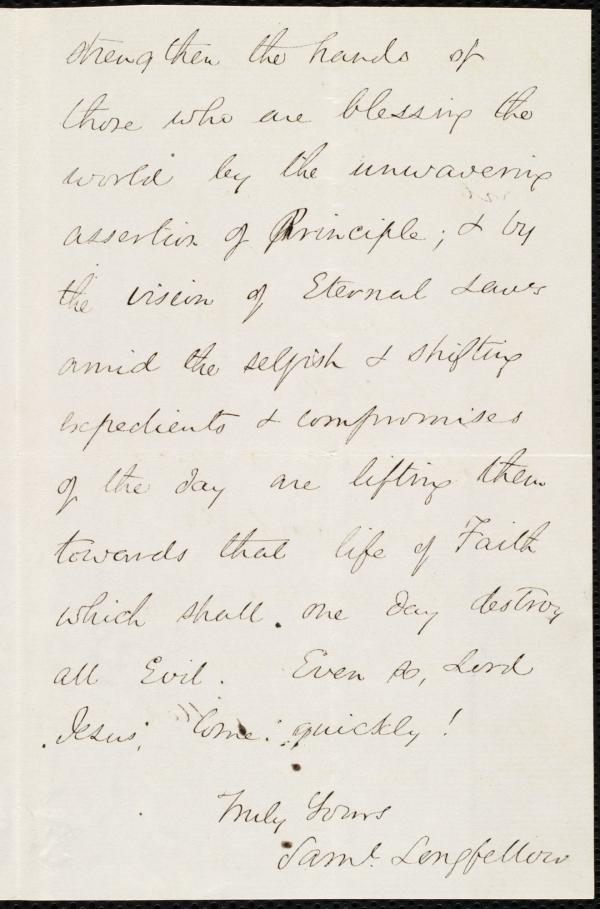 strengthen the hands of
those who are blessing the
world by the unwavering
assertion of Principle; & by
the vision of Eternal Laws
amid the selfish & shifting
expedients & compromises
of the day are lifting them
towards that life of Faith
which shall one day destroy
all Evil. Even so, Lord
Jesus, come quickly!
Truly Yours
Saml. Longfellow